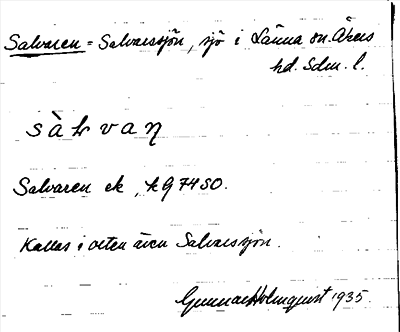 Salvaren = Salvarssjön, sjö i Länna sn. Åkers
hd. Sdm. l.
sàlvaŋ
Salvaren ek, kg 7450.
Kallas i orten även Salvarssjön.
Gunnar Holmquist 1935.